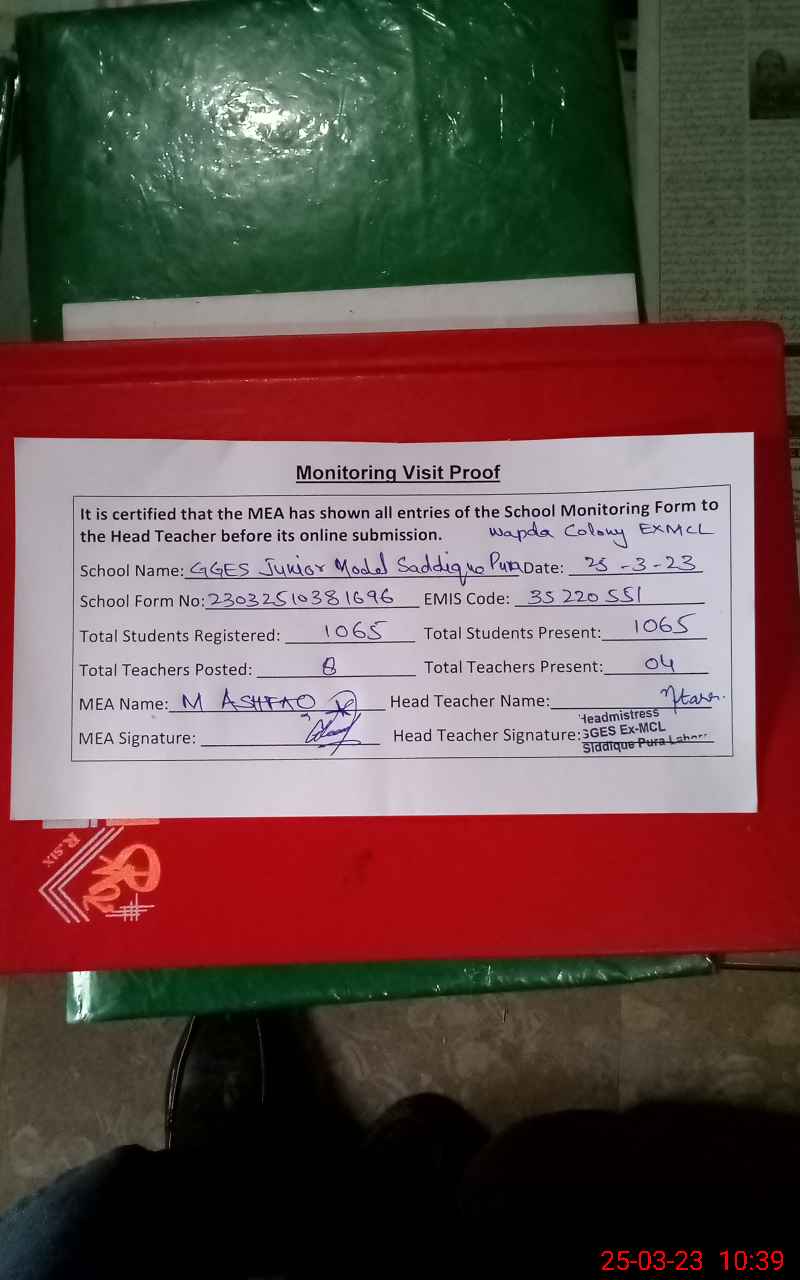 Monitoring Visit Proof
It is certified that the MEA has shown all entries of the School Monitoring Form to
the Head Teacher before its online submission. Wapda Colony EXMCL
School Name: GGES Junior Model Saddique Pura Date: 25-3-23
School Form No: 23032510381696 EMIS Code: 35220551
Total Students Registered: 1065 Total Students Present: 1065
Total Teachers Posted: 8 Total Teachers Present: 04
MEA Name: M ASHFAQ Head Teacher Name:
MEA Signature: Head Teacher Signature:
Headmistress
GGES Ex-MCL
Siddique Pura Lahore
R.SIX
25-03-23 10:39